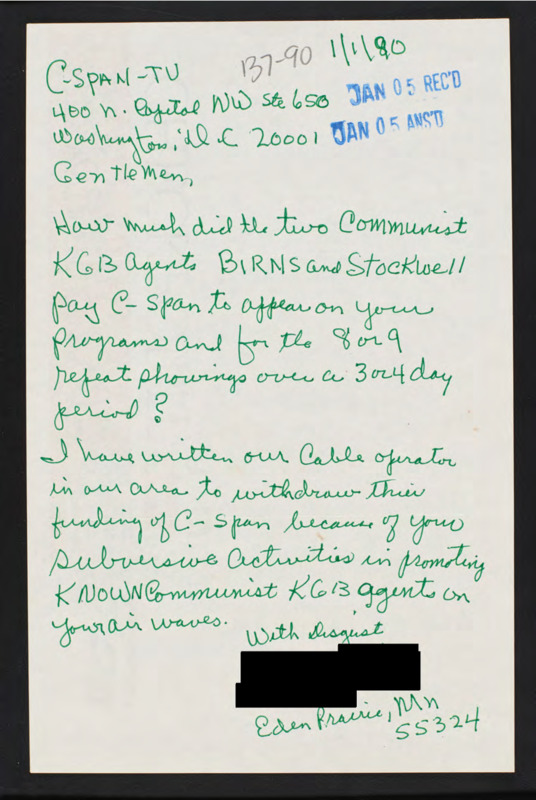 137-90 1/1/90
C-SPAN-TV
400 N. Capital NW Ste 650
JAN 05 REC'D
Washington, D.C 20001
JAN 05 ANS'D
Gentlemen,
How much did the two Communist
KGB Agents BIRNS and Stockwell
pay C-Span to appear on your
programs and for the 8 or 9
repeat showings over a 3 or 4 day
period?
I have written our Cable operator
in our area to withdraw thier
funding of C-Span because of your
subversive activities in promoting
KNOWN Communist KGB agents on
your air waves.
With Disgust
Eden Prairie, Mn
55324